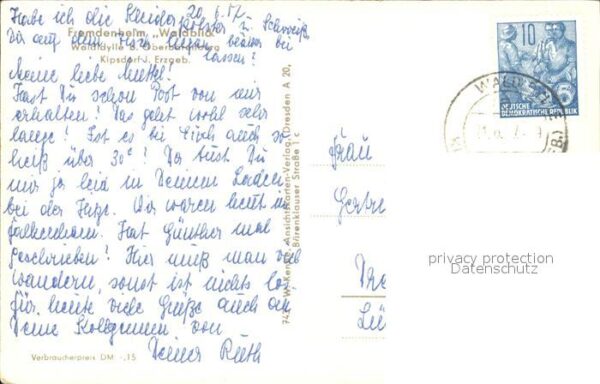 20.6.57
Habe ich die Kleiderkoffer u. Schweiß
Dir auf dem Hals liegen
lassen?
Fremdenheim „Waldblick"
Waldidylle ü. Oberbärenburg
Kipsdorf i. Erzgeb.
Meine liebe
Hast Du schon Post von mir
erhalten? Das geht wohl sehr
lange! Ist es bei Euch auch so
heiß über 30°? Da tust Du
mir ja leid in Deinem Laden
bei der Hitze. Wir waren heut in
Falkenhain. Hat Günther mal
geschrieben? Hier muß man viel
wandern, sonst ist nichts los.
Für heute viele Grüße auch an
Deine Kolleginnen von
Deiner Ruth
Verbraucherpreis DM -,15
Ansichtskarten-Verlag, Dresden A 20,
Bärenklauser Straße 1c
10
DEUTSCHE
DEMOKRATISCHE REPUBLIK
Frau
privacy protection
Datenschutz